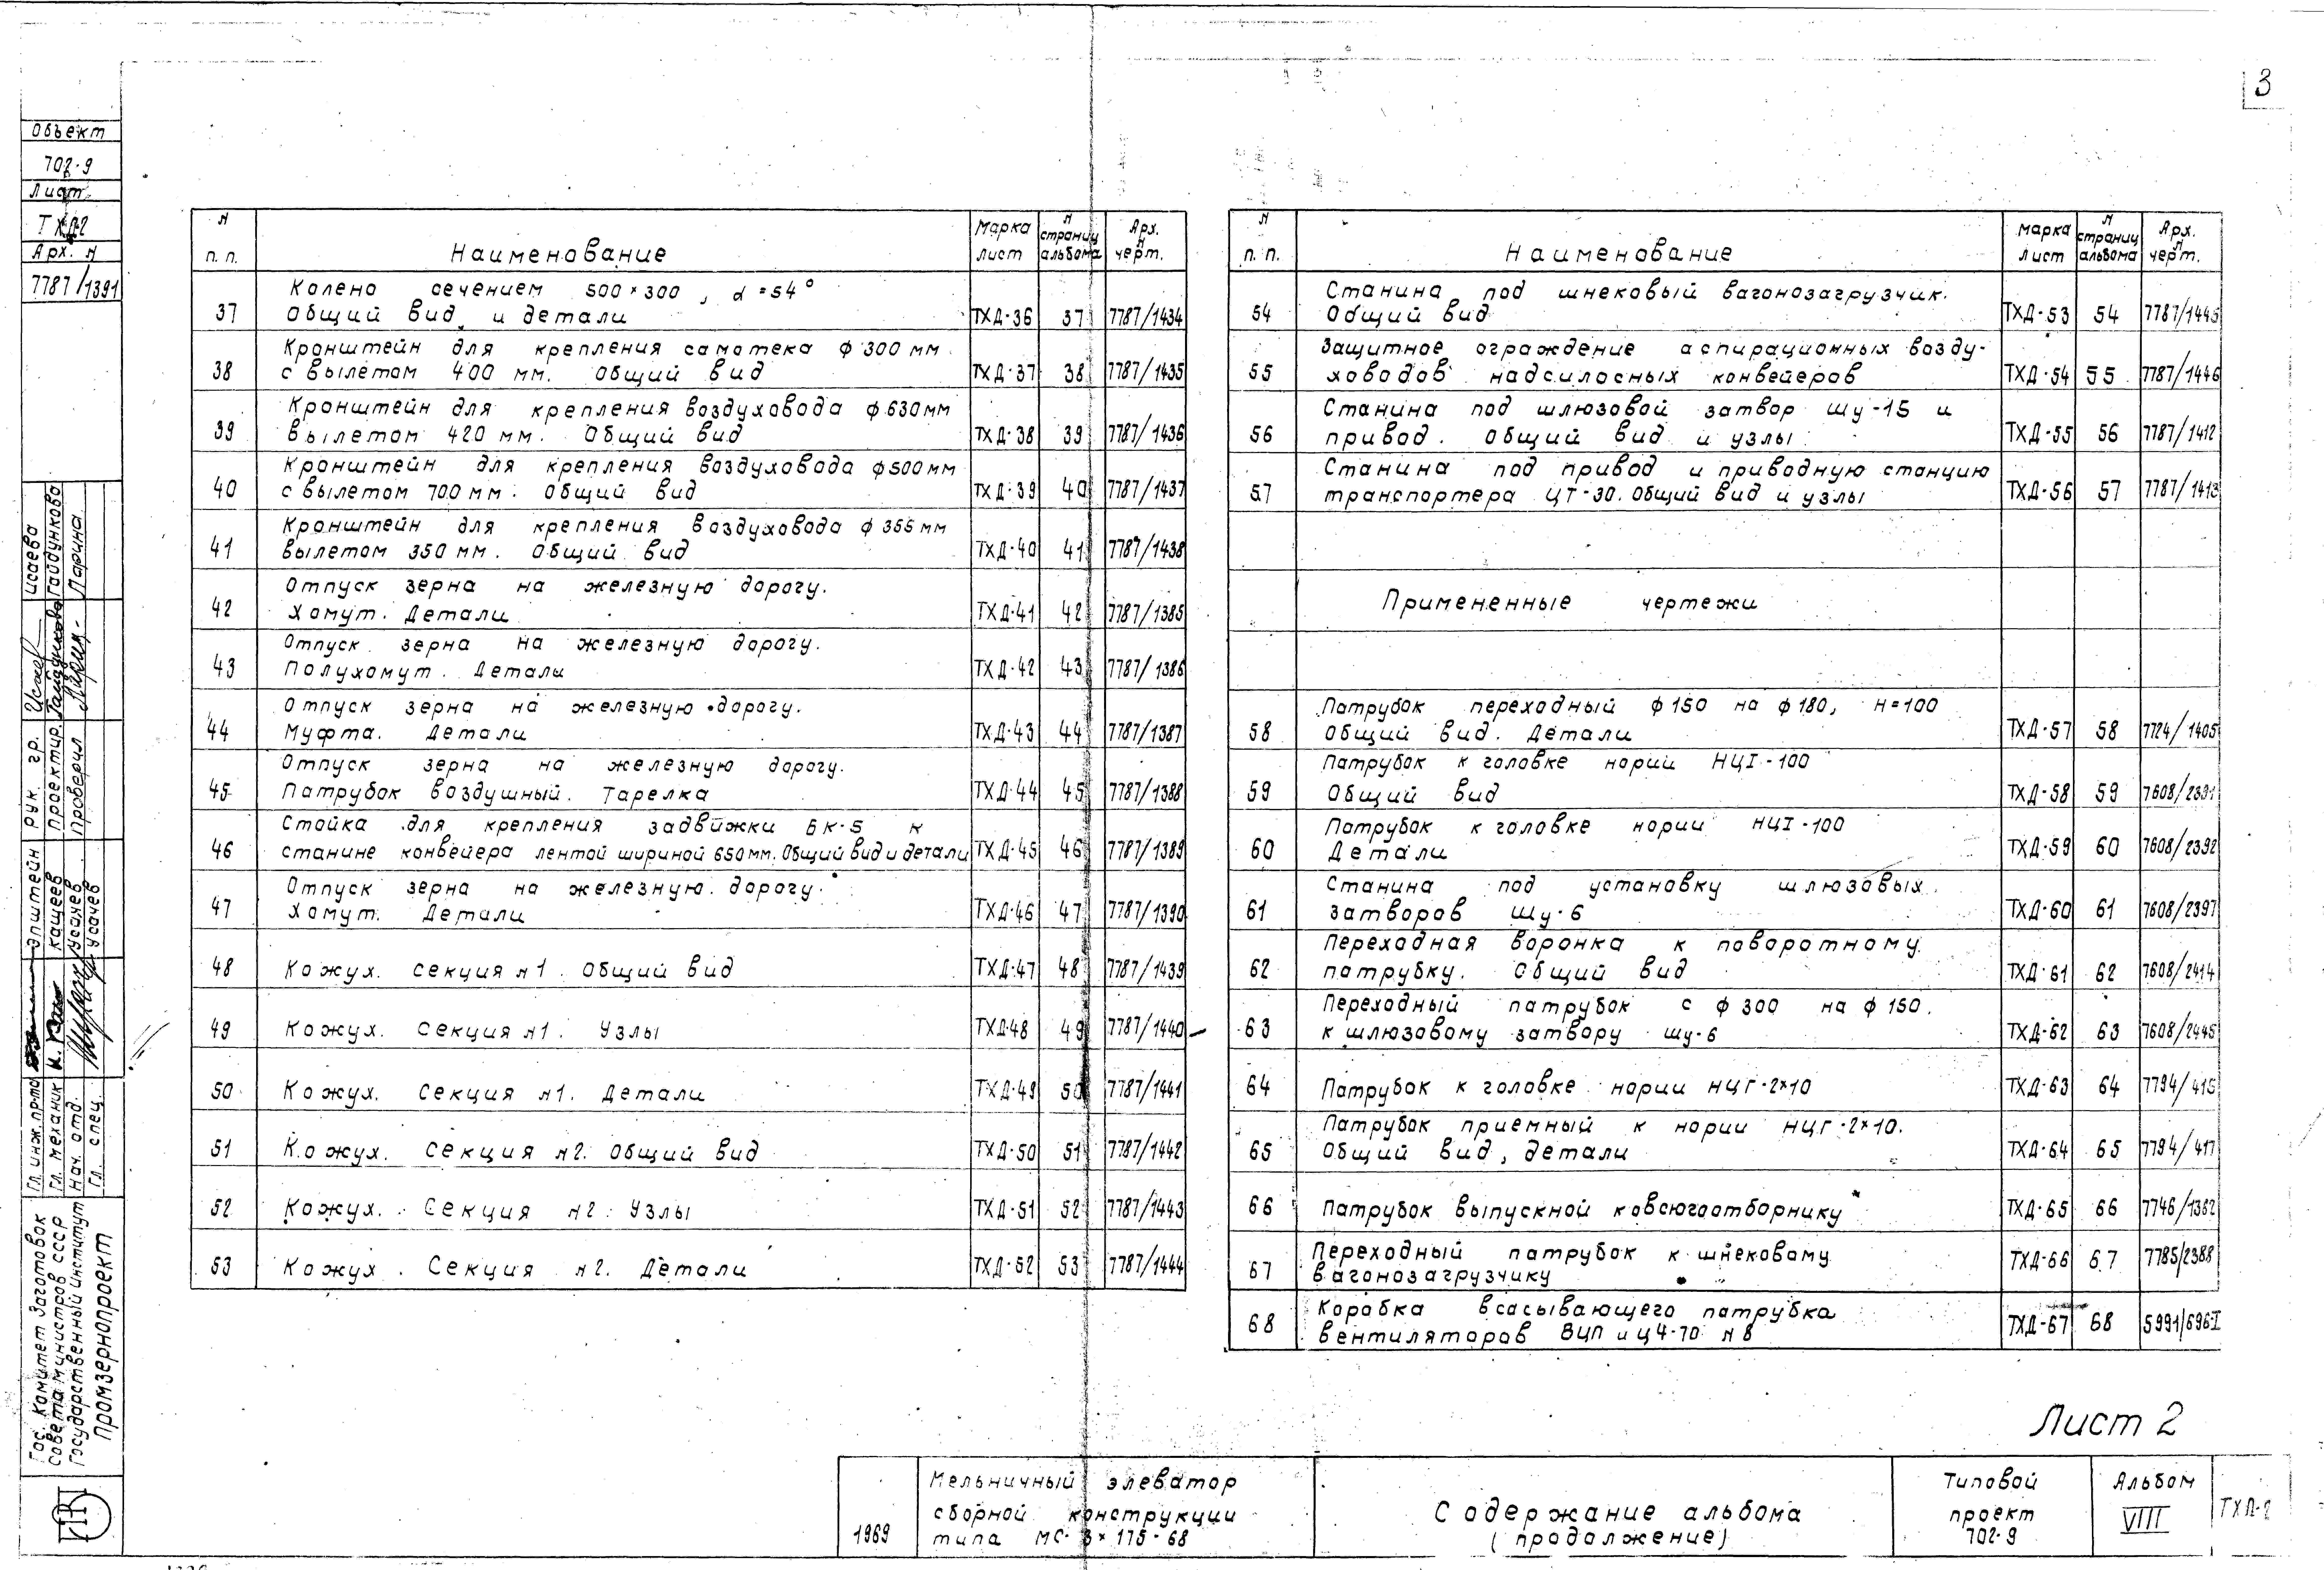 3
Объект
702-9
Лист
ТХД-2
Арх. N
7787/1391
Рук. гр. Исаева
Проектир. Гайдукова
Проверил Ларина
Гл. инж. пр-та Эпштейн
Гл. механик Кащеев
Нач. отд. Усачев
Гл. спец. Усачев
Гос. Комитет Заготовок
Совета министров СССР
Государственный институт
Промзернопроект
N п.п. Наименование Марка лист N страниц альбома Арх. N черт.
37 Колено сечением 500×300, α=54°
Общий вид и детали ТХД-36 37 7787/1434
38 Кронштейн для крепления самотека ф 300 мм
с вылетом 400 мм. Общий вид ТХД-37 38 7787/1435
39 Кронштейн для крепления воздуховода ф 630 мм
вылетом 420 мм. Общий вид ТХД-38 39 7787/1436
40 Кронштейн для крепления воздуховода ф 500 мм
с вылетом 700 мм. Общий вид ТХД-39 40 7787/1437
41 Кронштейн для крепления воздуховода ф 355 мм
вылетом 350 мм. Общий вид ТХД-40 41 7787/1438
42 Отпуск зерна на железную дорогу.
Хомут. Детали ТХД-41 42 7787/1385
43 Отпуск зерна на железную дорогу.
Полухомут. Детали ТХД-42 43 7787/1386
44 Отпуск зерна на железную дорогу.
Муфта. Детали ТХД-43 44 7787/1387
45 Отпуск зерна на железную дорогу.
Патрубок воздушный. Тарелка ТХД-44 45 7787/1388
46 Стойка для крепления задвижки БК-5 к
станине конвейера лентой шириной 650 мм. Общий вид и детали ТХД-45 46 7787/1389
47 Отпуск зерна на железную дорогу.
Хомут. Детали ТХД-46 47 7787/1390
48 Кожух. Секция N1. Общий вид ТХД-47 48 7787/1439
49 Кожух. Секция N1. Узлы ТХД-48 49 7787/1440
50 Кожух. Секция N1. Детали ТХД-49 50 7787/1441
51 Кожух. Секция N2. Общий вид ТХД-50 51 7787/1442
52 Кожух. Секция N2. Узлы ТХД-51 52 7787/1443
53 Кожух. Секция N2. Детали ТХД-52 53 7787/1444
N п.п. Наименование Марка лист N страниц альбома Арх. N черт.
54 Станина под шнековый вагонозагрузчик.
Общий вид ТХД-53 54 7787/1445
55 Защитное ограждение аспирационных возду-
ховодов надсилосных конвейеров ТХД-54 55 7787/1446
56 Станина под шлюзовой затвор ШУ-15 и
привод. Общий вид и узлы ТХД-55 56 7787/1412
57 Станина под привод и приводную станцию
транспортера ЦТ-30. Общий вид и узлы ТХД-56 57 7787/1413
Примененные чертежи
58 Патрубок переходный ф 150 на ф 180, H=100
Общий вид. Детали ТХД-57 58 7724/1405
59 Патрубок к головке нории НЦI-100
Общий вид ТХД-58 59 7608/2391
60 Патрубок к головке нории НЦI-100
Детали ТХД-59 60 7608/2392
61 Станина под установку шлюзовых
затворов ШУ-6 ТХД-60 61 7608/2397
62 Переходная воронка к поворотному
патрубку. Общий вид ТХД-61 62 7608/2414
63 Переходный патрубок с ф 300 на ф 150.
к шлюзовому затвору ШУ-6 ТХД-62 63 7608/2445
64 Патрубок к головке нории НЦГ-2×10 ТХД-63 64 7794/415
65 Патрубок приемный к нории НЦГ-2×10.
Общий вид, детали ТХД-64 65 7794/417
66 Патрубок выпускной к овсюгоотборнику ТХД-65 66 7746/1362
67 Переходный патрубок к шнековому
вагонозагрузчику ТХД-66 67 7785/2388
68 Коробка всасывающего патрубка
вентиляторов ВЦП и Ц4-70 N 8 ТХД-67 68 5991/696-I
Лист 2
1969
Мельничный элеватор
сборной конструкции
типа МС-3×175-68
Содержание альбома
(продолжение)
Типовой
проект
702-9
Альбом
VIII
ТХД-2